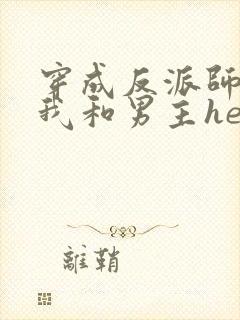 穿成反派師
我和男主he
離鞘